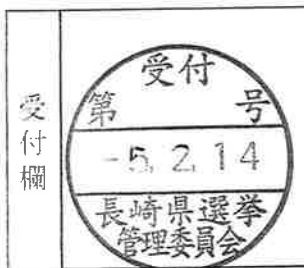 受付欄
受付
第 号
-5.2.14
長崎県選挙
管理委員会